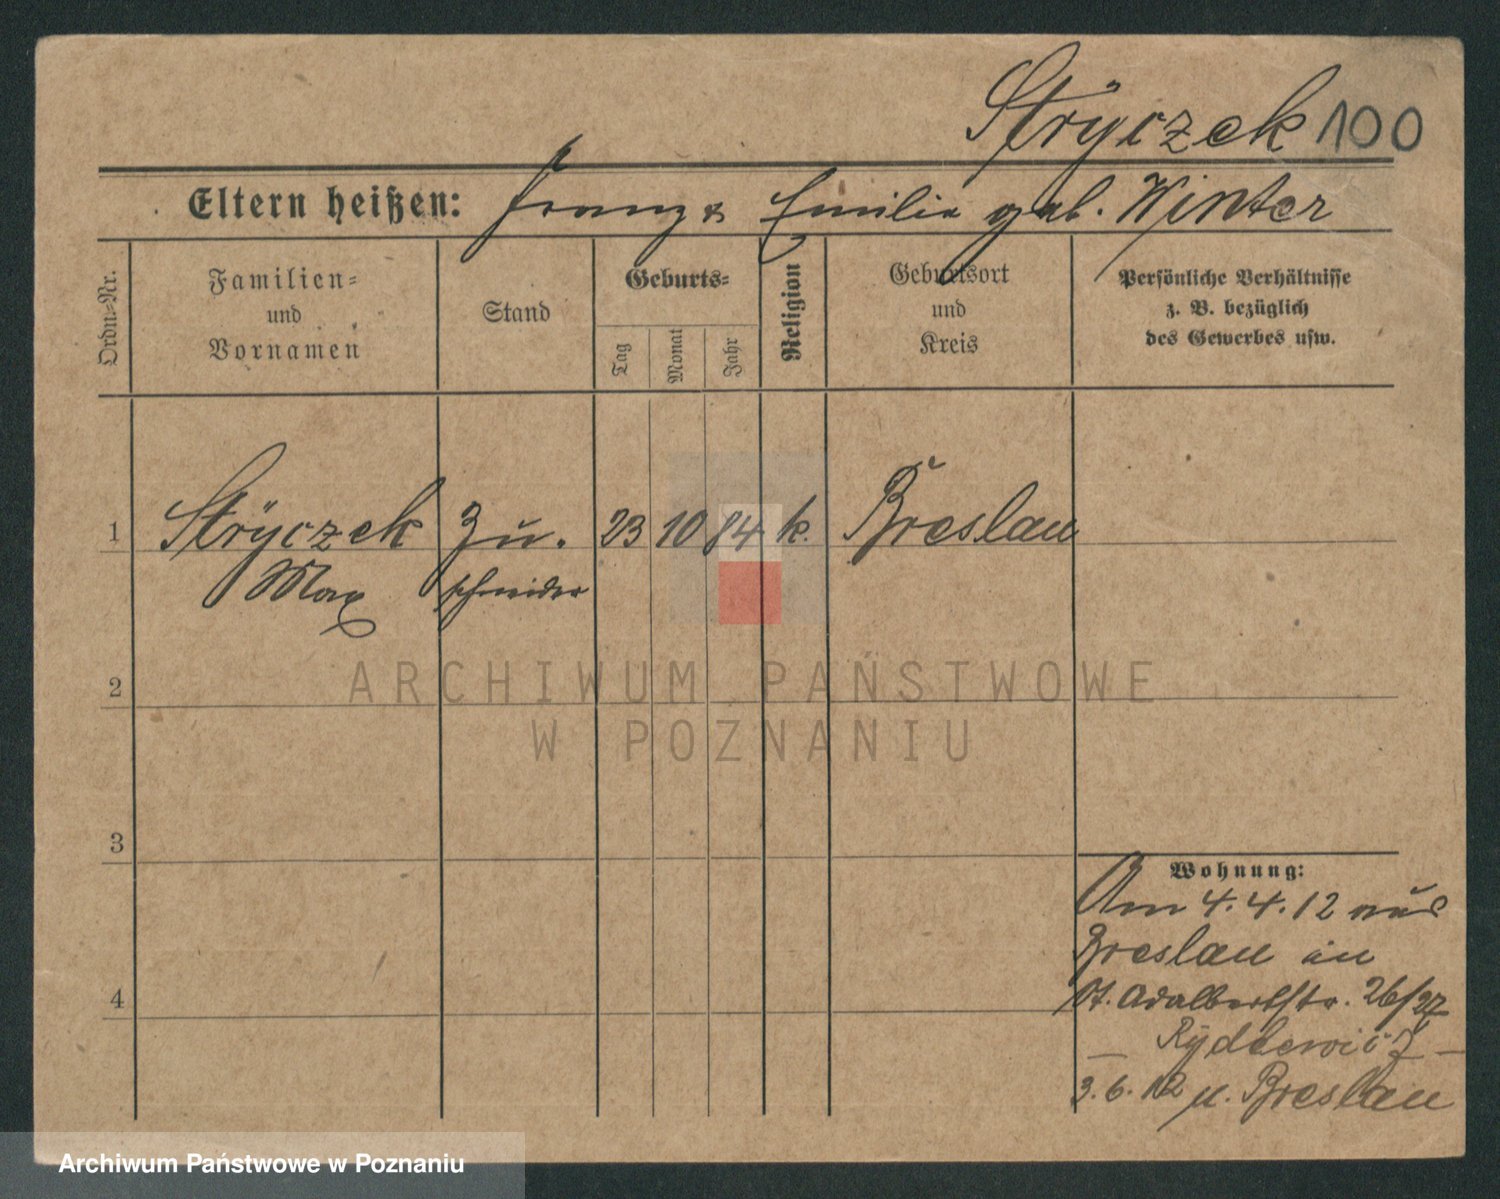 Stryczek 100
Eltern heißen: Franz & Emilie geb. Winter
Ordn.-Nr.
Familien-
und
Vornamen
Stand
Geburts-
Tag
Monat
Jahr
Religion
Geburtsort
und
Kreis
Persönliche Verhältnisse
z. B. bezüglich
des Gewerbes usw.
1 Stryczek Zu. 23 10 84 k. Breslau
Max schneider
2
ARCHIWUM PAŃSTWOWE
W POZNANIU
3
Wohnung:
Am 4.4.12 aus
Breslau in
St. Adalbertstr. 26/27
4
3.6.12 n. Breslau
Archiwum Państwowe w Poznaniu